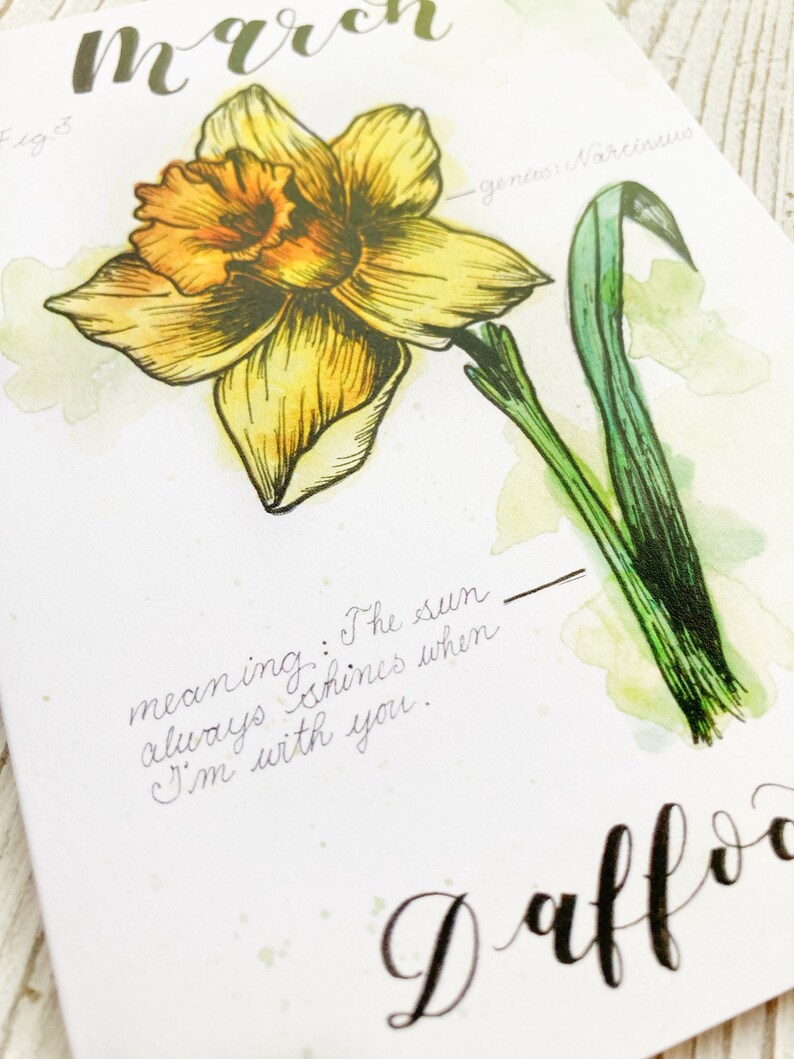 March
Fig. 3
genus: Narcissus
meaning: The sun
always shines when
I'm with you.
Daffo